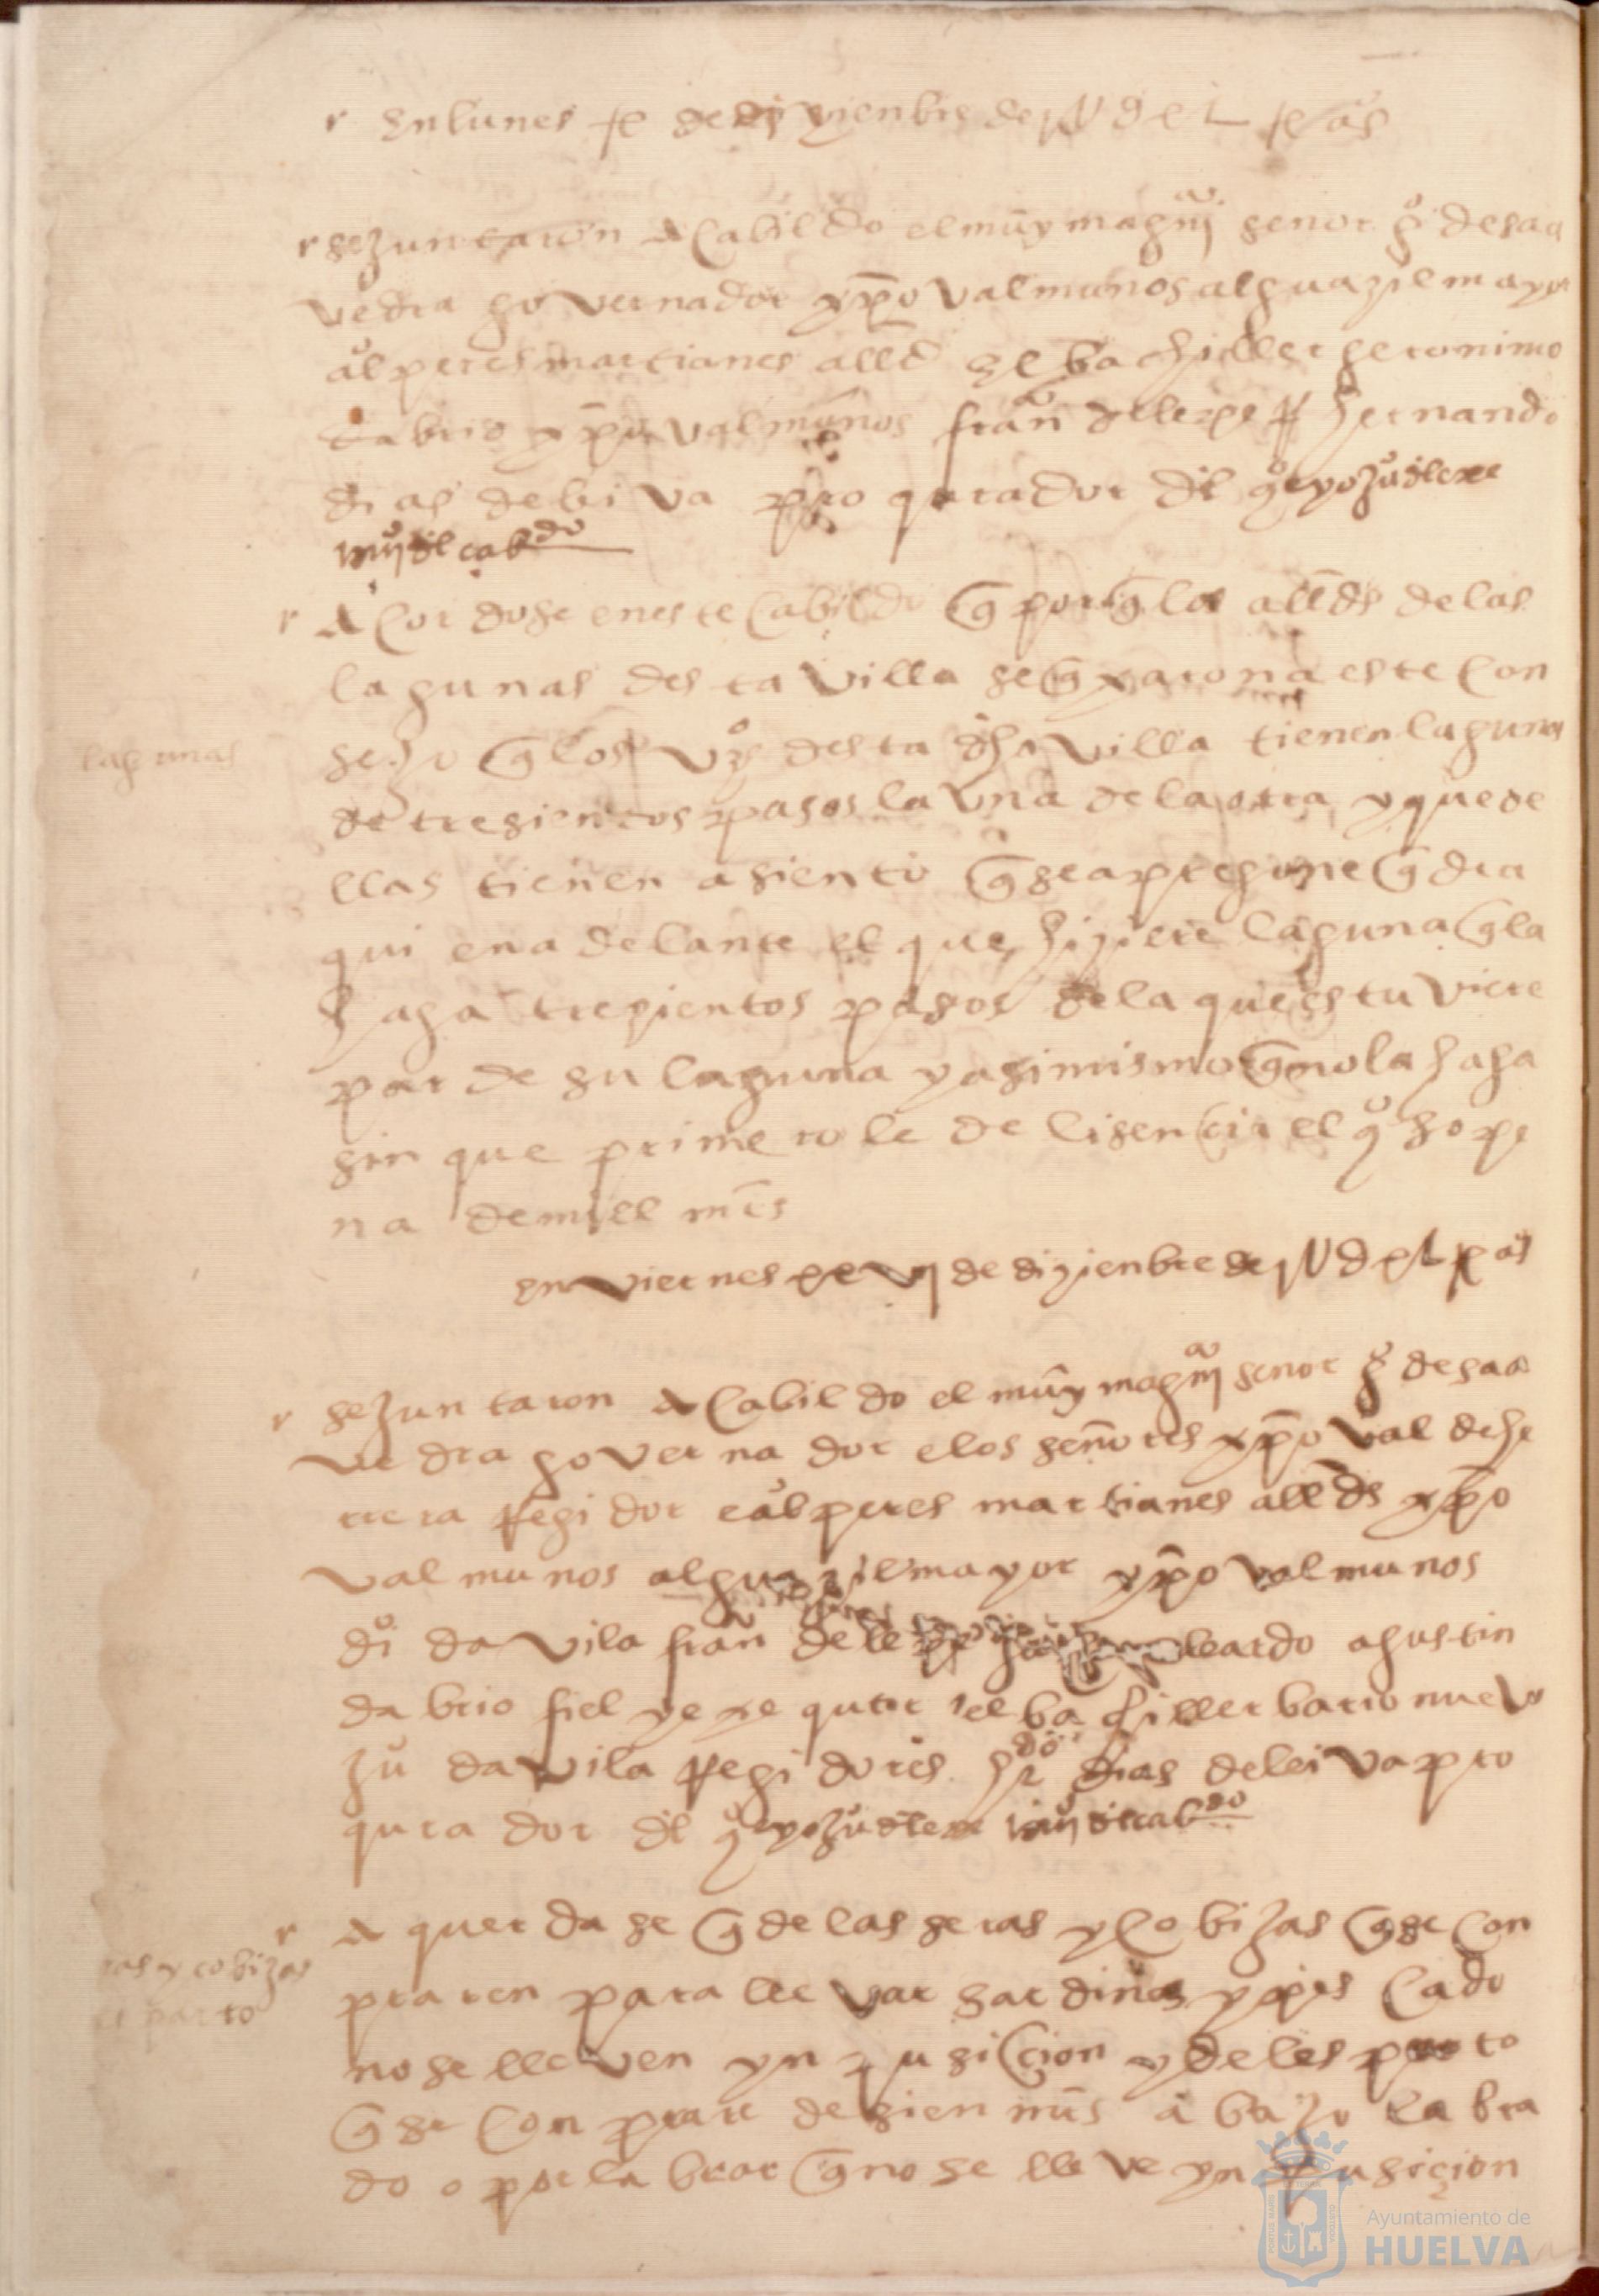 en lunes de dizienbre de años
se juntaron a cabildo el muy magco señor gº de saa
vedra governador xpoval muños alguazil mayor
alº peres martianes alld el bachiller geronimo
dabrio xpoval muños fran de lepe hernando
dias de biva procurador del
del cabdo
acordose en este cabildo q porq los allds de las
lagunas desta villa se qxaron a este con
sejo q los vzos desta dha villa tienen lagunas
de tresientos pasos la una de la otra y que de
llas tienen asiento q se apregone q de a
qui en adelante el que hiziere laguna q la
haga trezientos pasos de la que estuviere
par de su laguna y asimismo q no la haga
sin que primero le de lisencia el qº so pe
na de mill mrs
lagunas
en viernes de dizienbre de años
se juntaron a cabildo el muy magco señor gº de saa
vedra governador e los señores xpoval de he
rrera regidor e alº peres martianes allds xpo
val muños alguazil mayor xpoval muños
dº davila fran de lepe agustin
dabrio fiel y exequtor el bachiller barionuevo
juº davila regidores hrdo dias de leiva pro
qurador del qº del cabdo
aquerdase q de las seras y cobijas q se con
praren para llevar sardinas y pescado
no se lleven ynpusicion y del esparto
q se conprare de sien mrs abajo labra
do o por labrar q no se lleve ynpusiçion
ras y cobijas
parto
Ayuntamiento de
HUELVA